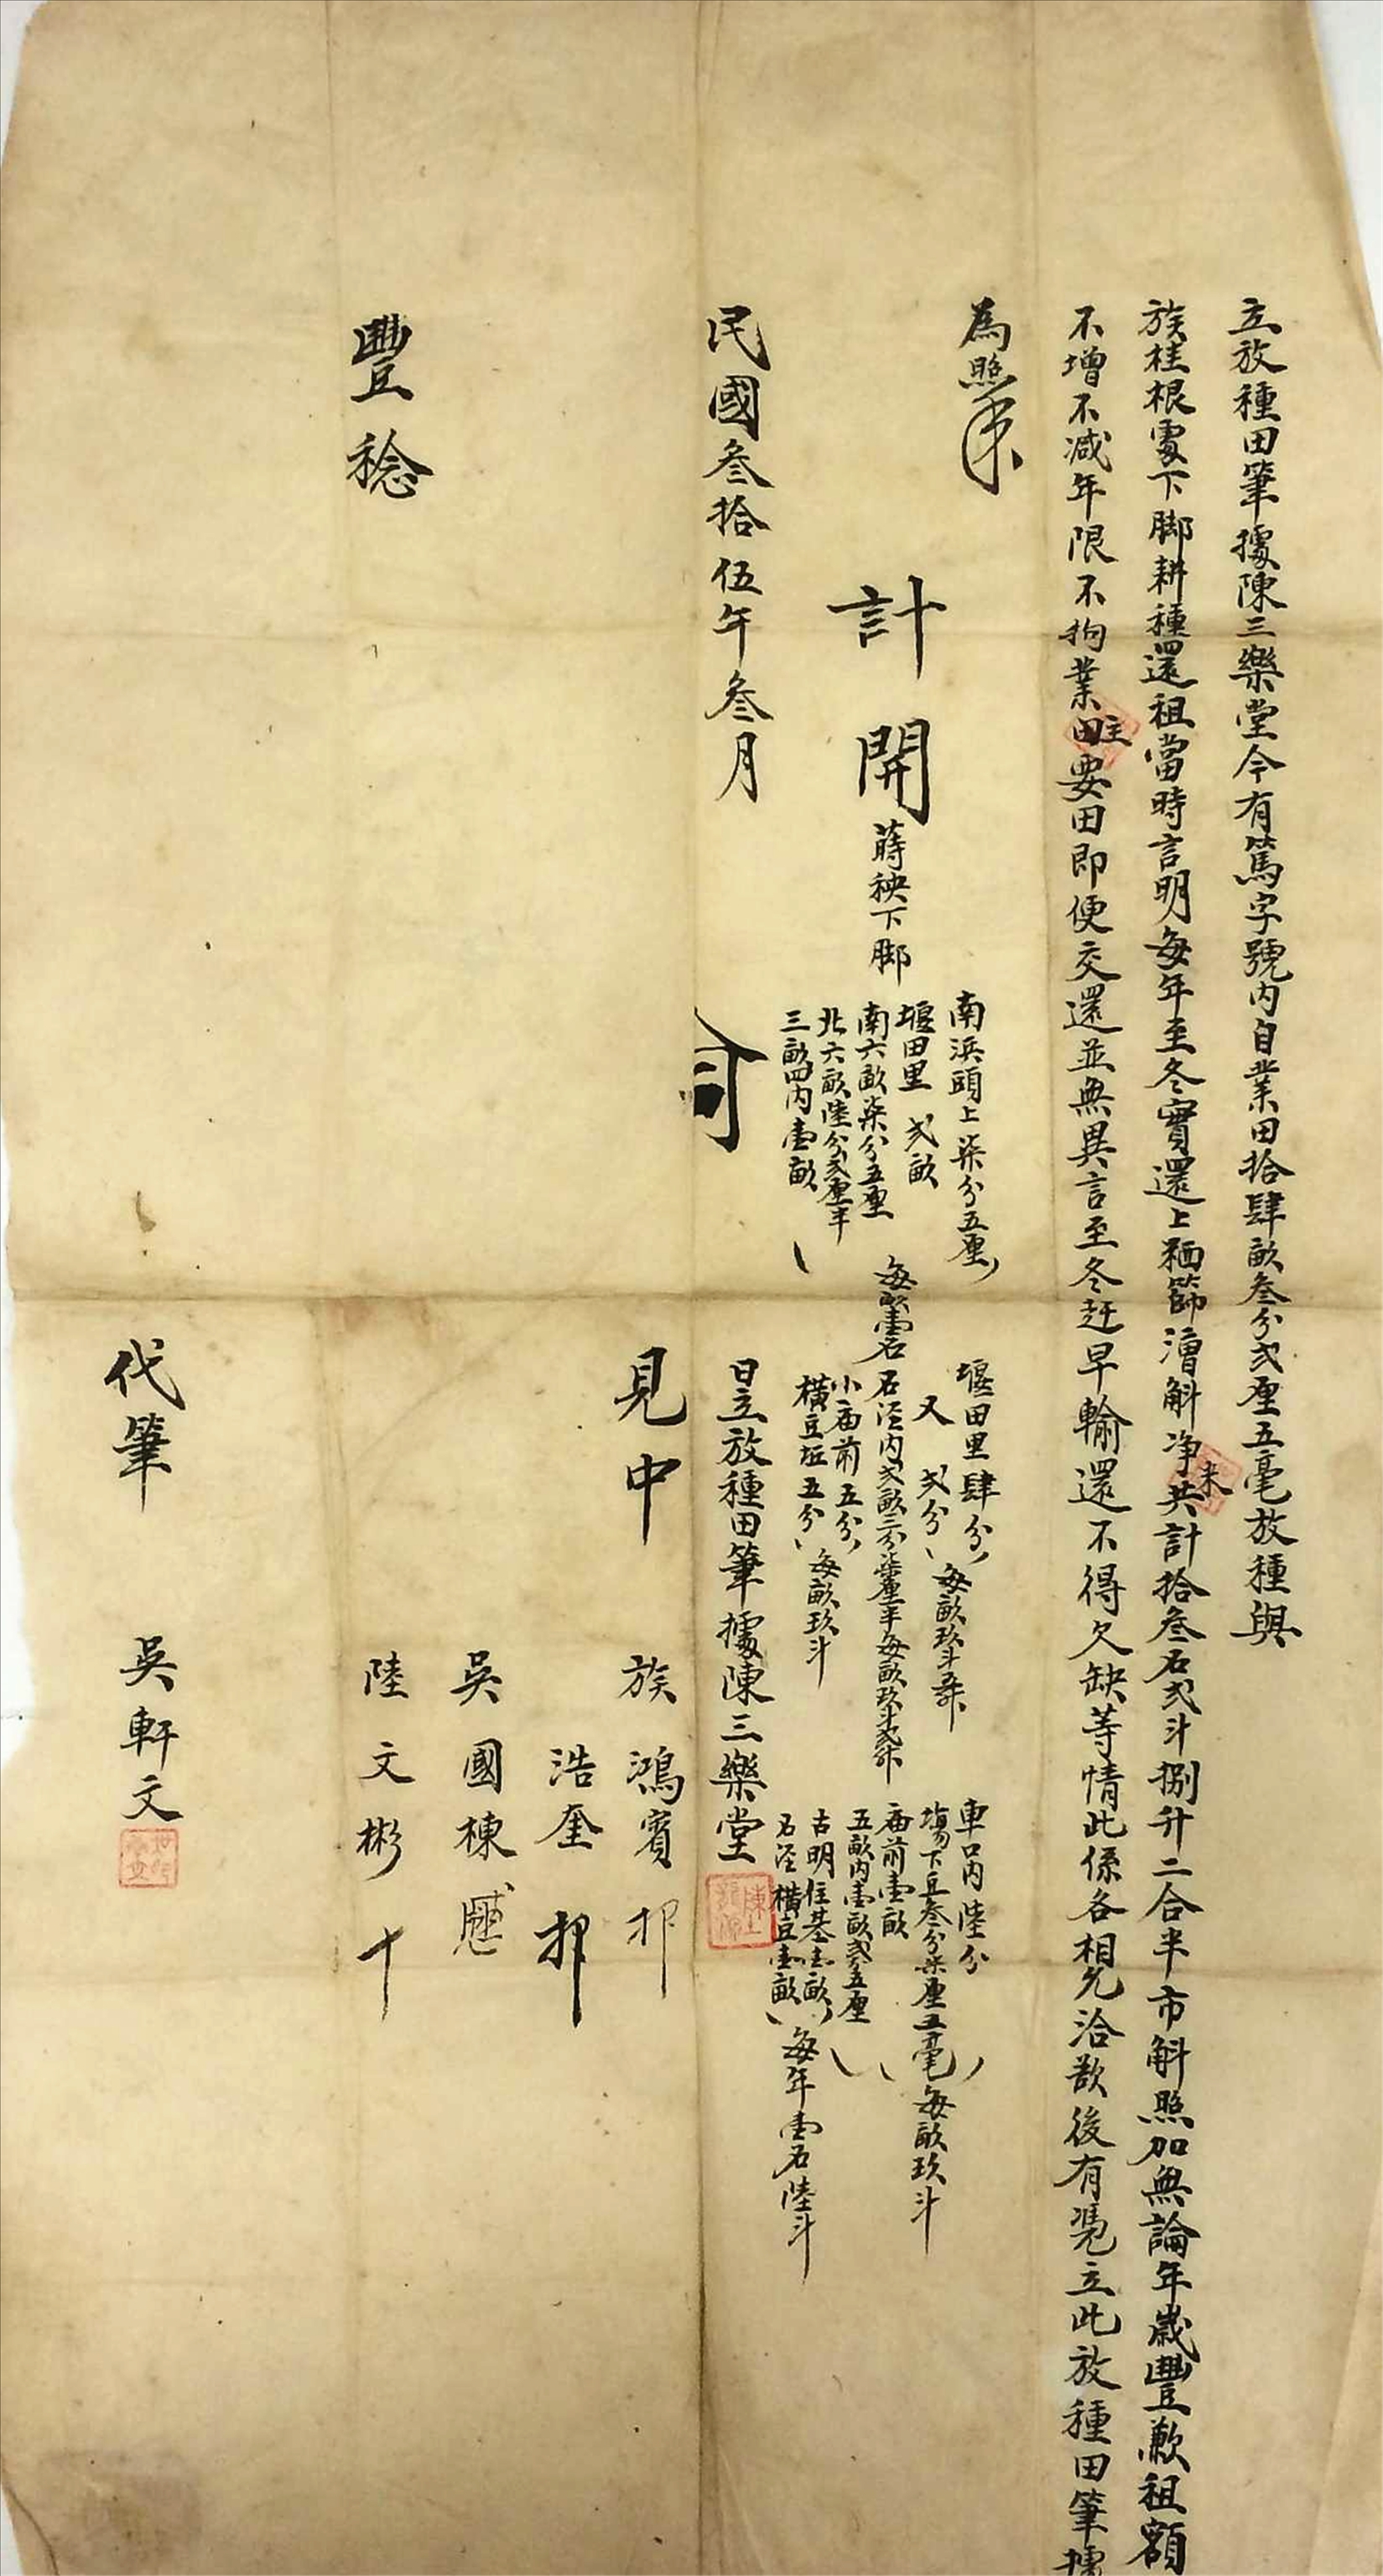 立放種田筆據陳三樂堂今有篤字號內自業田拾肆畝叁分弍厘五毫放種與
族桂根處下脚耕種還租當時言明每年至冬實還上粞篩漕斛净米共計拾叁石弍斗捌升二合半市斛照加無論年歲豐歉租額
不增不減年限不拘業主要田即便交還並無異言至冬赶早輸還不得欠缺等情此係各相允洽歡後有凴立此放種田筆據
為照
計開
蒔秧下脚
南浜頭上柒分五厘
堰田里 弍畝
南六畝柒分五厘
北六畝陸分弍厘半
三畝四內壹畝
每畝壹石
堰田里肆分
又 弍分
每畝玖斗
石涇內弍畝三分柒厘半每畝玖斗
小庙前五分
橫豆坵五分
每畝玖斗
車口內陸分
塲下豆叁分柒厘五毫
每畝玖斗
庙前壹畝
五畝內壹畝弍分五厘
古明住基壹畝
石涇橫豆壹畝
每年壹石陸斗
民國叁拾伍年叁月
日立放種田筆據陳三樂堂
見中
族 鴻賓 押
浩奎 押
吳國棟
陸文彬 十
豐稔
代筆 吳軒文